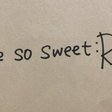 e so sweet:R